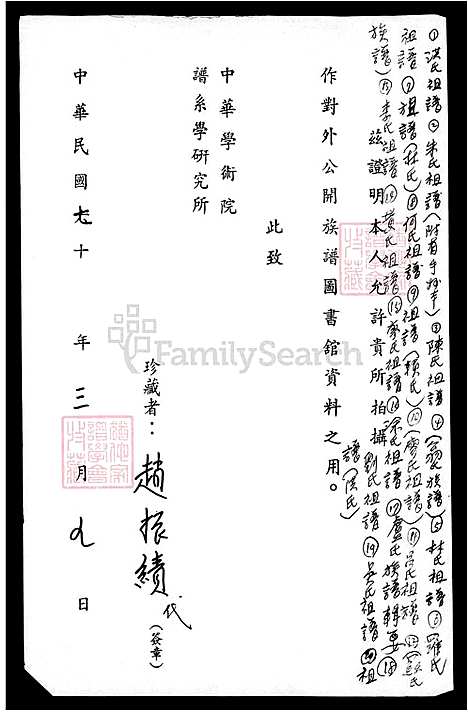 ①洪氏祖譜②朱氏祖譜(附有手抄本)③陳氏祖譜④(翁氏族譜)⑤林氏祖譜⑥羅氏
祖譜⑦祖譜(杜氏)⑧何氏祖譜⑨祖譜(賴氏)⑩廖氏祖譜⑪呂氏祖譜
族譜)⑬李氏祖譜⑭黃氏祖譜⑮廖氏祖譜⑯涂氏祖譜⑰盧氏族譜輯要⑱
劉氏祖譜⑲吳氏祖譜⑳祖
譜(洪氏)
茲證明本人允許貴所拍攝
作對外公開族譜圖書館資料之用。
此致
中華學術院
譜系學研究所
珍藏者:趙振績代(簽章)
中華民國七十年三月九日
FamilySearch